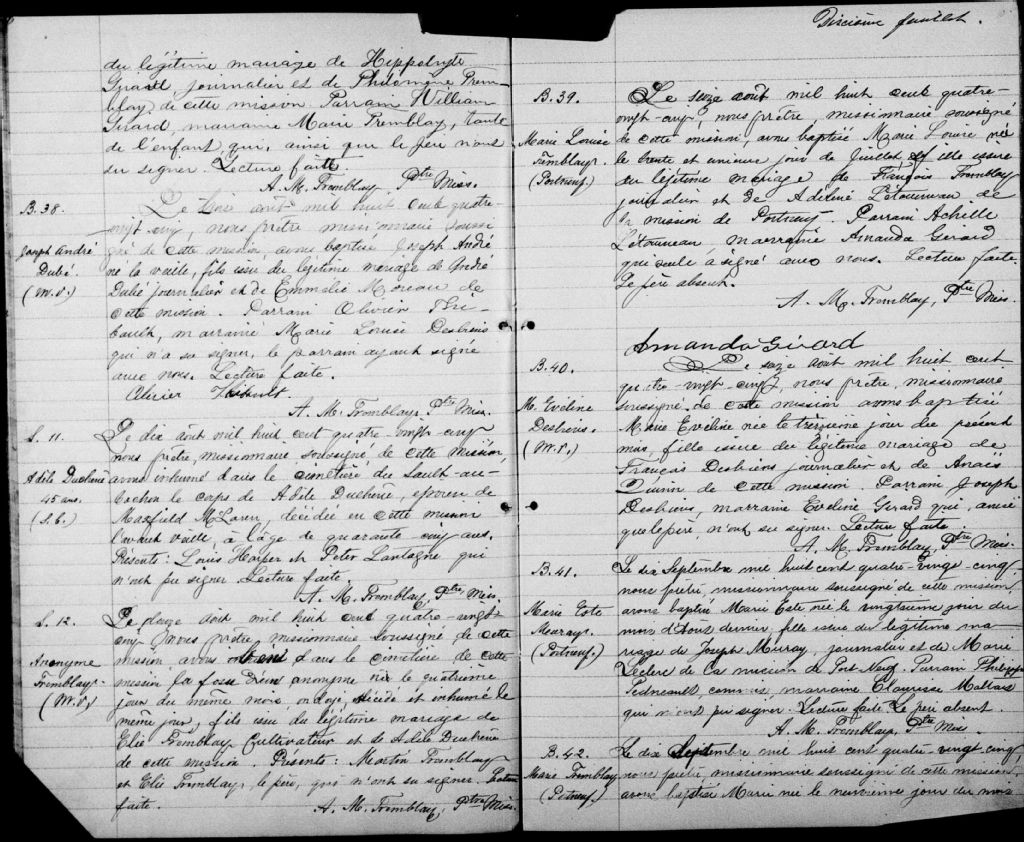 du légitime mariage de Hippolyte
Girard journalier et de Philomène Trem-
blay de cette mission. Parrain William
Girard, marraine Marie Tremblay, tante
de l'enfant qui, ainsi que le père n'ont
su signer. Lecture faite.
A. M. Tremblay, Ptre Miss.
B. 38.
Joseph André
Dubé
(M. V.)
Le août mil huit cent quatre-
vingt-cinq, nous prêtre missionnaire soussi
gné de cette mission, avons baptisé Joseph André
né la veille, fils issu du légitime mariage de André
Dubé journalier et de Emmelie Moreau de
cette mission. Parrain Olivier Thi-
bault, marraine Marie Louise Desbiens
qui n'a su signer, le parrain ayant signé
avec nous. Lecture faite.
Olivier Thibault
A. M. Tremblay, Ptre Miss.
S. 11.
Adèle Duchène
45 ans.
(S. C.)
Le dix août mil huit cent quatre-vingt-cinq
nous prêtre, missionnaire soussigné de cette mission,
avons inhumé dans le cimetière du Sault-au-
Cochon le corps de Adèle Duchène, épouse de
Maxfield McLaren, décédée en cette mission
l'avant veille, à l'âge de quarante cinq ans.
Présents: Louis Harper et Peter Lantagne qui
n'ont pu signer. Lecture faite.
A. M. Tremblay, Ptre Miss.
S. 12.
Anonyme
Tremblay.
(M. V.)
Le douze août mil huit cent quatre-vingt-
cinq nous prêtre missionnaire soussigné de cette
mission avons dans le cimetière de cette
mission la anonyme né le quatrième
jour du même mois, ondoyé, décédé et inhumé le
même jour, fils issu du légitime mariage de
Elie Tremblay cultivateur et de Adèle Duchène
de cette mission. Présents: Martin Tremblay
et Elie Tremblay, le père, qui n'ont su signer. Lecture
faite.
A. M. Tremblay, Ptre Miss.
feuillet.
B. 39.
Marie Louise
Tremblay.
(Portneuf.)
Le seize août mil huit cent quatre-
vingt-cinq, nous prêtre, missionnaire soussigné
de cette mission, avons baptisé Marie Louise née
le trente et unième jour de Juillet, fille issue
du légitime mariage de François Tremblay
journalier et de Adéline Létourneau de
la mission de Portneuf. Parrain Achille
Létourneau marraine Amanda Girard
qui seule a signé avec nous. Lecture faite.
Le père absent.
A. M. Tremblay, Ptre Miss.
Amanda Girard
B. 40.
M. Eveline
Desbiens.
(M. V.)
Le seize août mil huit cent
quatre-vingt cinq, nous prêtre, missionnaire
soussigné de cette mission avons baptisé
Marie Eveline née le treizième jour du présent
mois fille issue du légitime mariage de
François Desbiens journalier et de Anaïs
de cette mission. Parrain Joseph
Desbiens, marraine Eveline Girard qui, ainsi
que le père, n'ont su signer. Lecture faite.
A. M. Tremblay, Ptre Miss.
B. 41.
Marie
Murray.
(Portneuf.)
Le dix Septembre mil huit cent quatre-vingt-cinq
nous prêtre, missionnaire soussigné de cette mission,
avons baptisé Marie née le vingtième jour du
mois d'Août dernier, fille issue du légitime ma-
riage de Joseph Muray, journalier et de Marie
Leclerc de la mission de Port-Neuf. Parrain Philippe
Pedneault commis, marraine Maltais
qui n'ont pu signer. Lecture faite. Le père absent.
A. M. Tremblay, Ptre Miss.
B. 42.
Marie Tremblay
(Portneuf.)
Le dix Septembre mil huit cent quatre-vingt-cinq,
nous prêtre missionnaire soussigné de cette mission,
avons baptisé Marie née le neuvième jour du mois